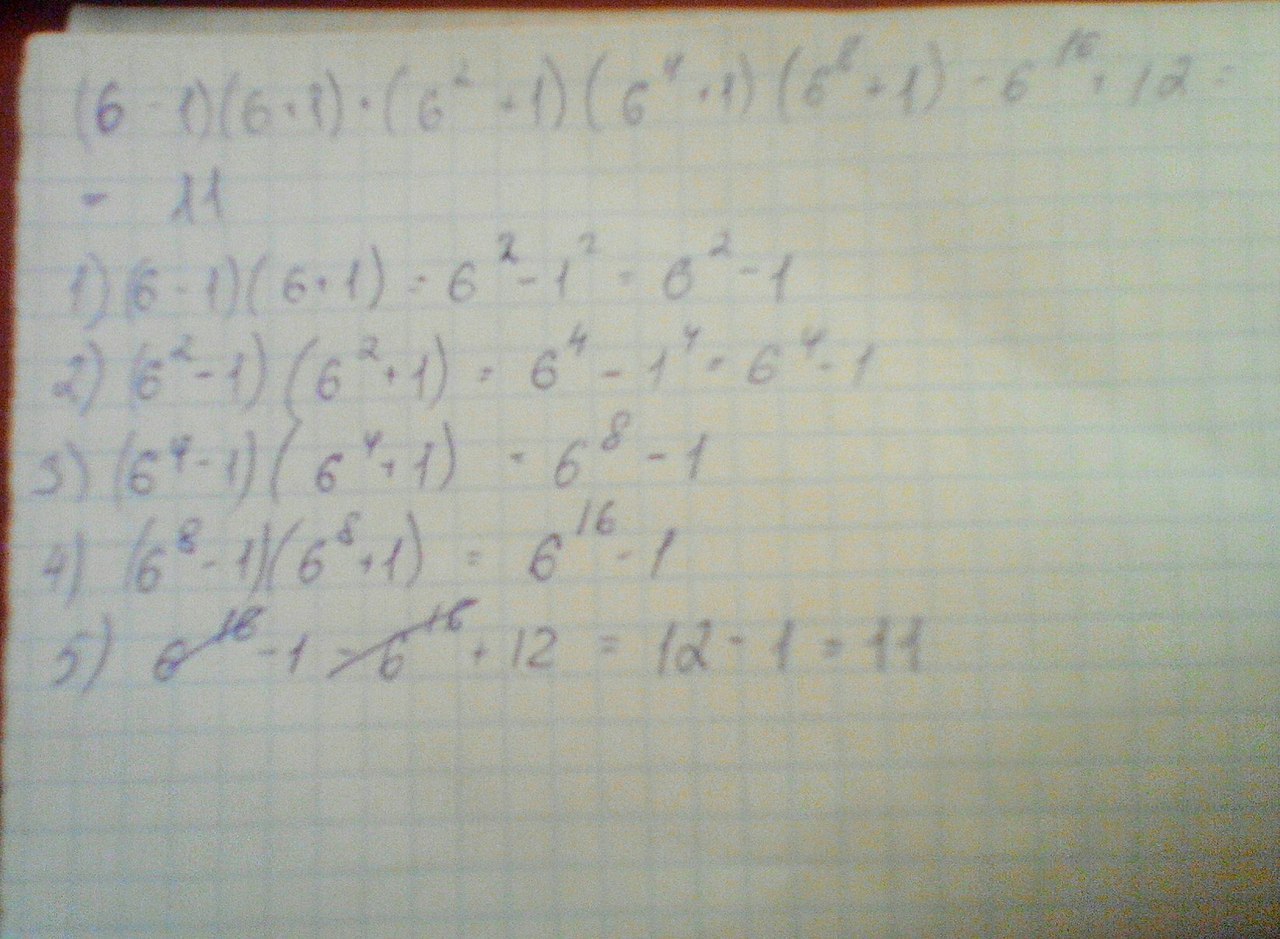 (6 - 1)(6+1)·(6² +1)(6⁴+1)(6⁸+1) - 6¹⁶ + 12 =
= 11
1) (6-1)(6+1) = 6² - 1² = 6² - 1
2) (6² - 1)(6² + 1) = 6⁴ - 1⁴ = 6⁴ - 1
3) (6⁴ - 1)(6⁴ + 1) = 6⁸ - 1
4) (6⁸ - 1)(6⁸ + 1) = 6¹⁶ - 1
5) 6¹⁶ - 1 - 6¹⁶ + 12 = 12 - 1 = 11